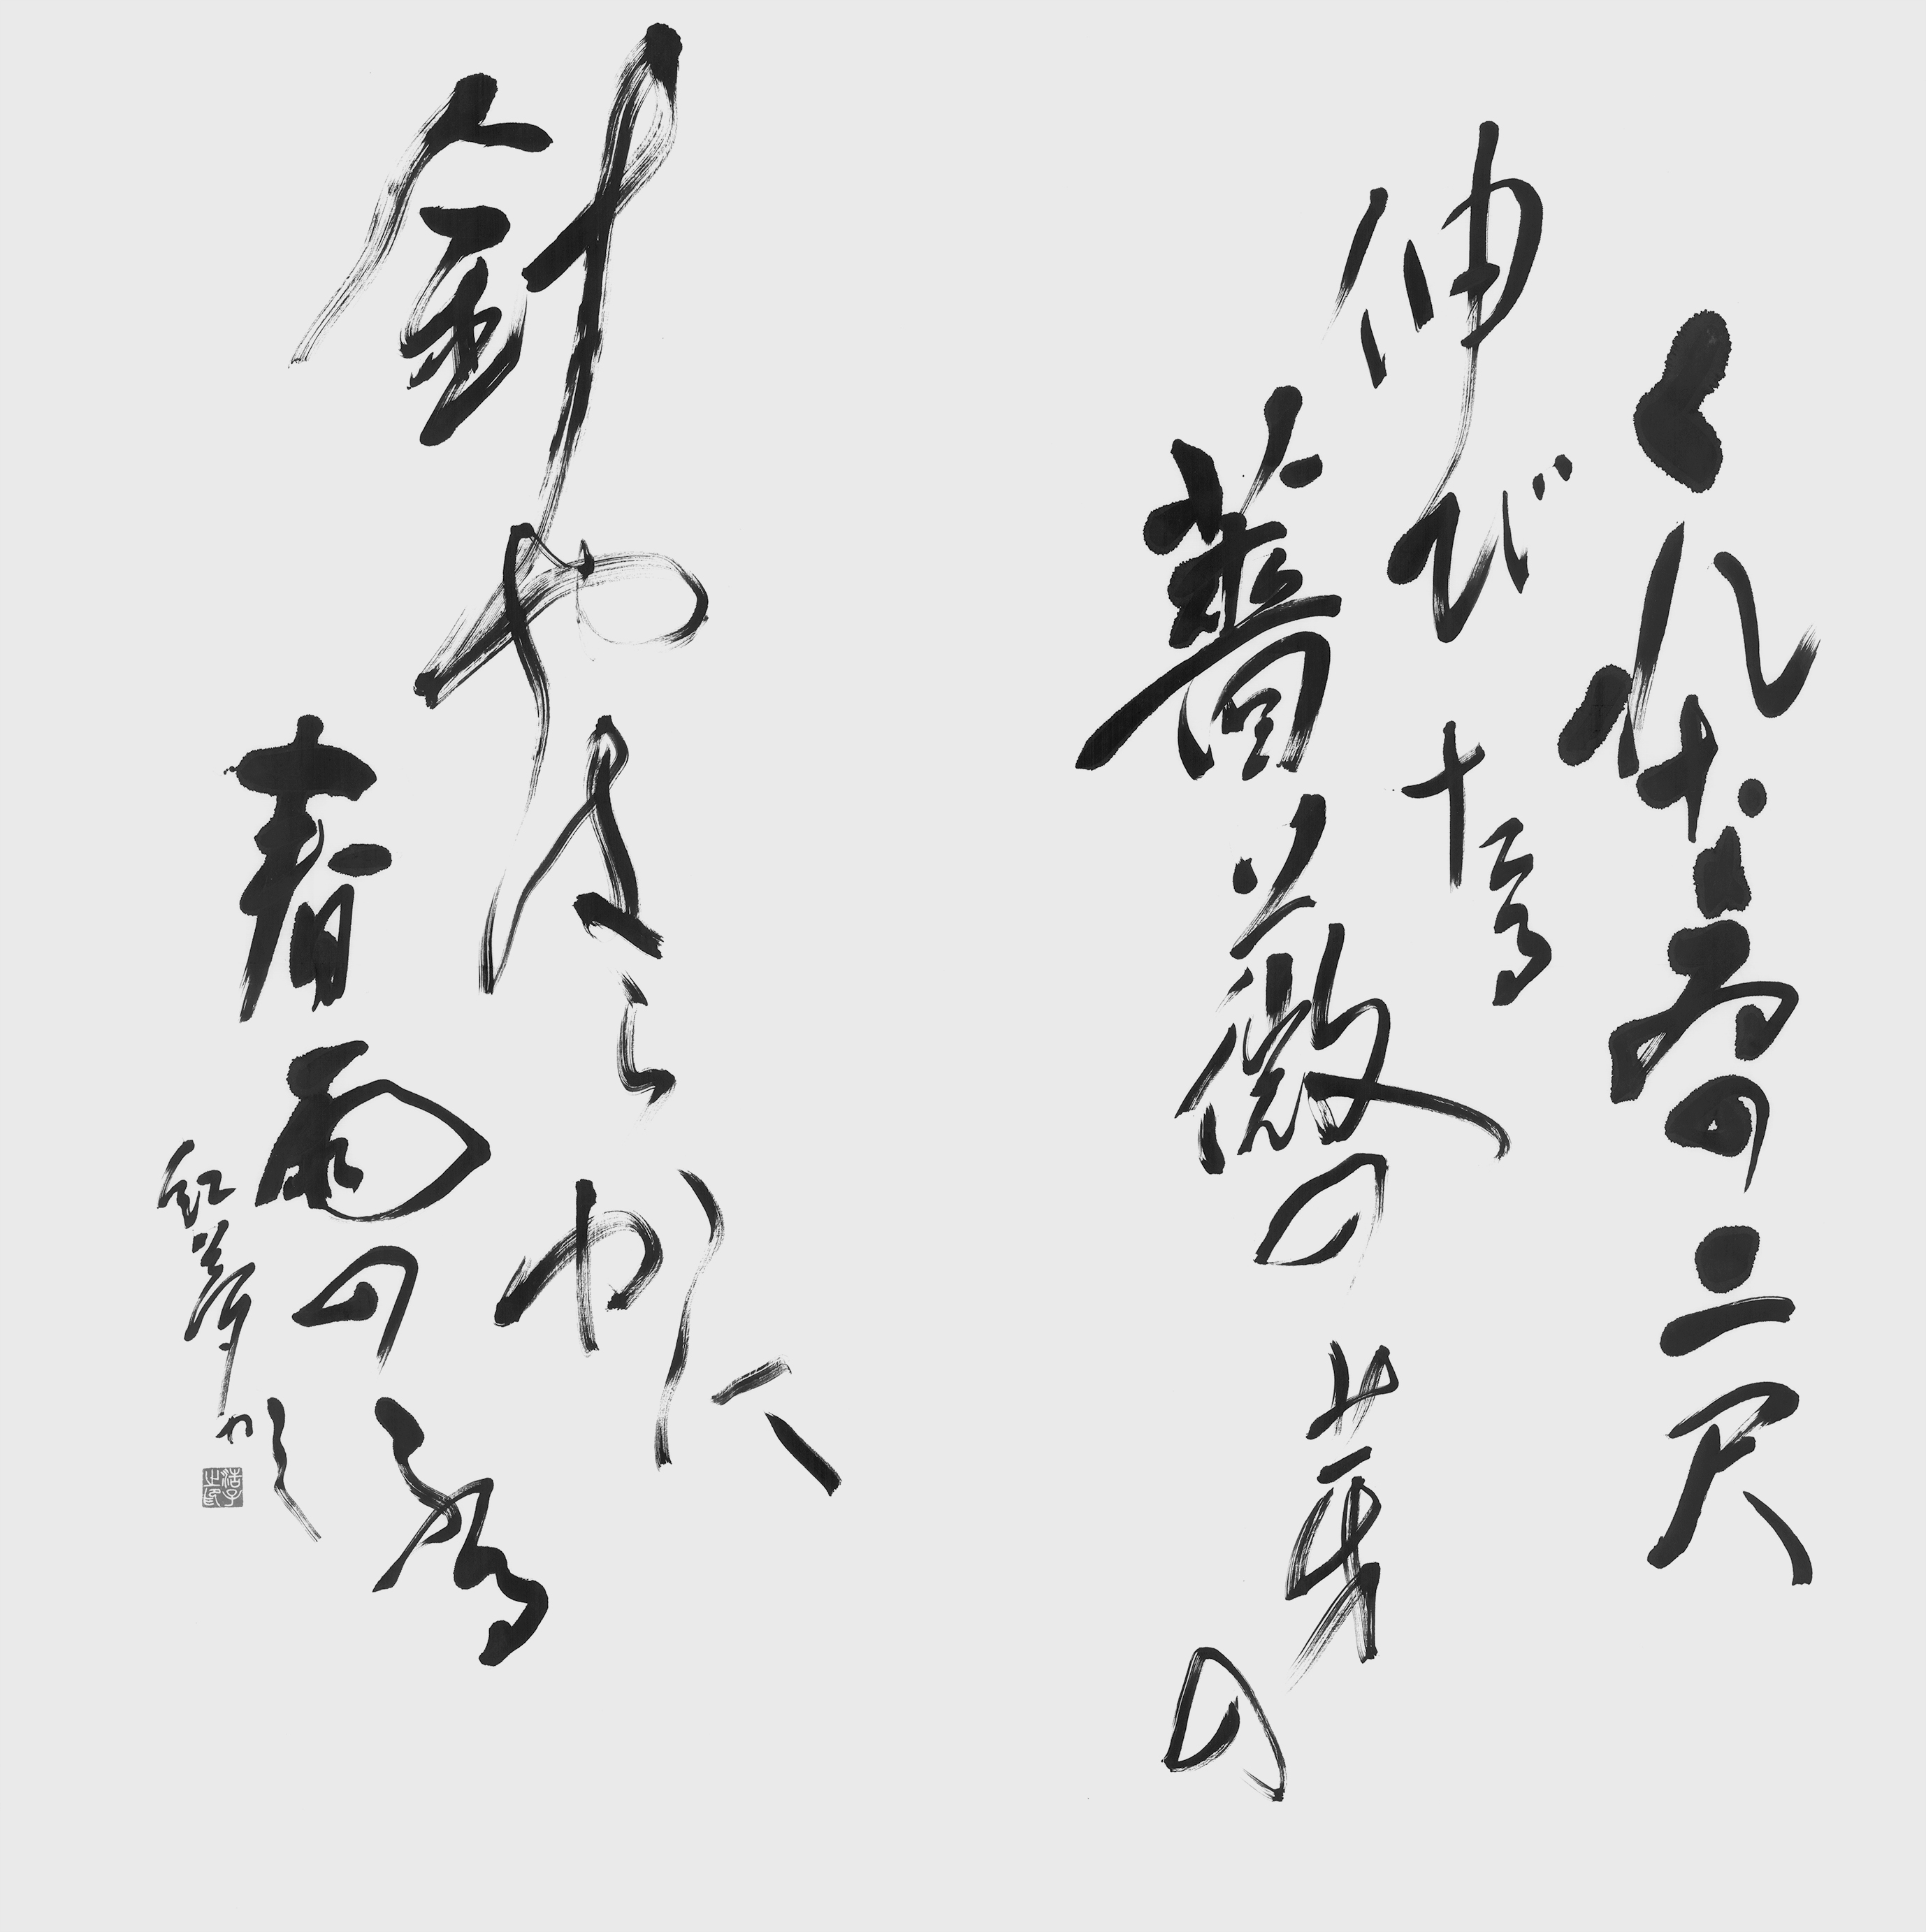 くれなゐの二尺
伸びたる
薔薇の芽の
針やはらかに
春雨のふる
浩子之印